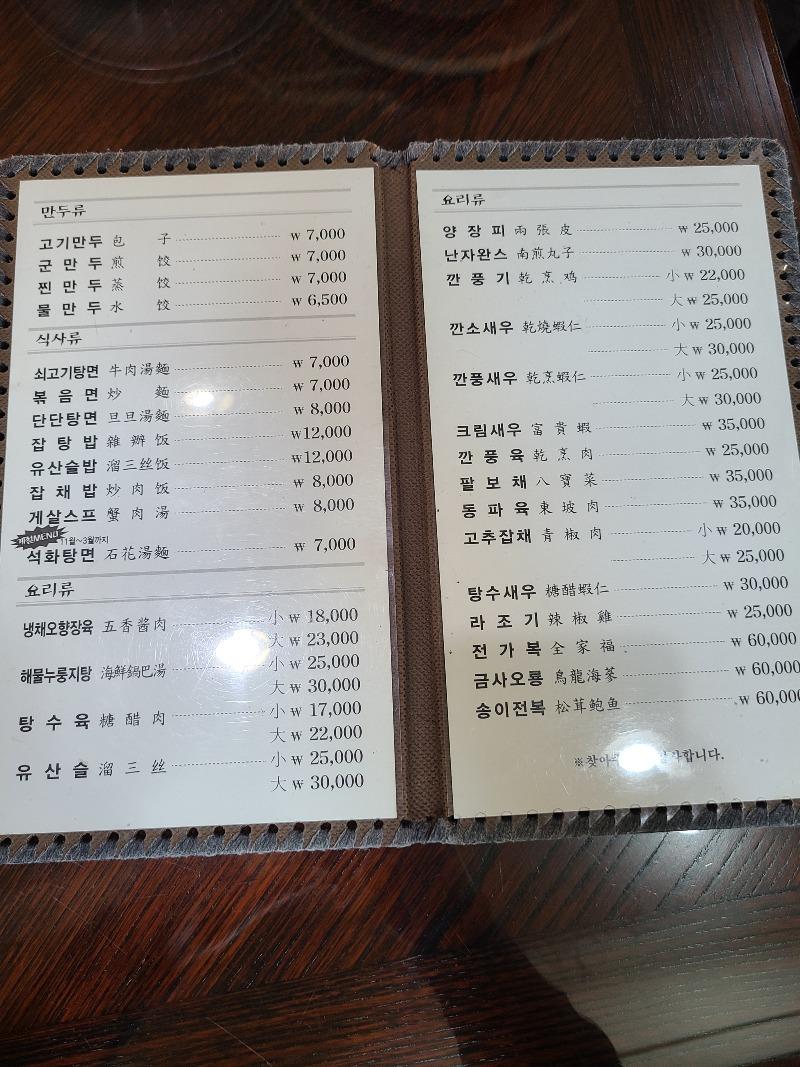 만두류
고기만두 包 子 ₩ 7,000
군만두 煎 饺 ₩ 7,000
찐만두 蒸 饺 ₩ 7,000
물만두 水 饺 ₩ 6,500
식사류
쇠고기탕면 牛肉湯麵 ₩ 7,000
볶음면 炒 麵 ₩ 7,000
단단탕면 旦旦湯麵 ₩ 8,000
잡탕밥 雜辦饭 ₩12,000
유산슬밥 溜三丝饭 ₩12,000
잡채밥 炒肉饭 ₩ 8,000
게살스프 蟹肉湯 ₩ 8,000
계절MENU 11월~3월까지
석화탕면 石花湯麵 ₩ 7,000
요리류
냉채오향장육 五香醬肉 小 ₩ 18,000
大 ₩ 23,000
해물누룽지탕 海鮮鍋巴湯 小 ₩ 25,000
大 ₩ 30,000
탕수육 糖醋肉 小 ₩ 17,000
大 ₩ 22,000
유산슬 溜三丝 小 ₩ 25,000
大 ₩ 30,000
요리류
양장피 兩張皮 ₩ 25,000
난자완스 南煎丸子 ₩ 30,000
깐풍기 乾烹鸡 小 ₩ 22,000
大 ₩ 25,000
깐소새우 乾燒蝦仁 小 ₩ 25,000
大 ₩ 30,000
깐풍새우 乾烹蝦仁 小 ₩ 25,000
大 ₩ 30,000
크림새우 富貴蝦 ₩ 35,000
깐풍육 乾烹肉 ₩ 25,000
팔보채 八寶菜 ₩ 35,000
동파육 東坡肉 ₩ 35,000
고추잡채 青椒肉 小 ₩ 20,000
大 ₩ 25,000
탕수새우 糖醋蝦仁 ₩ 30,000
라조기 辣椒雞 ₩ 25,000
전가복 全家福 ₩ 60,000
금사오룡 烏龍海蔘 ₩ 60,000
송이전복 松茸鮑鱼 ₩ 60,000
※찾아 감사합니다.